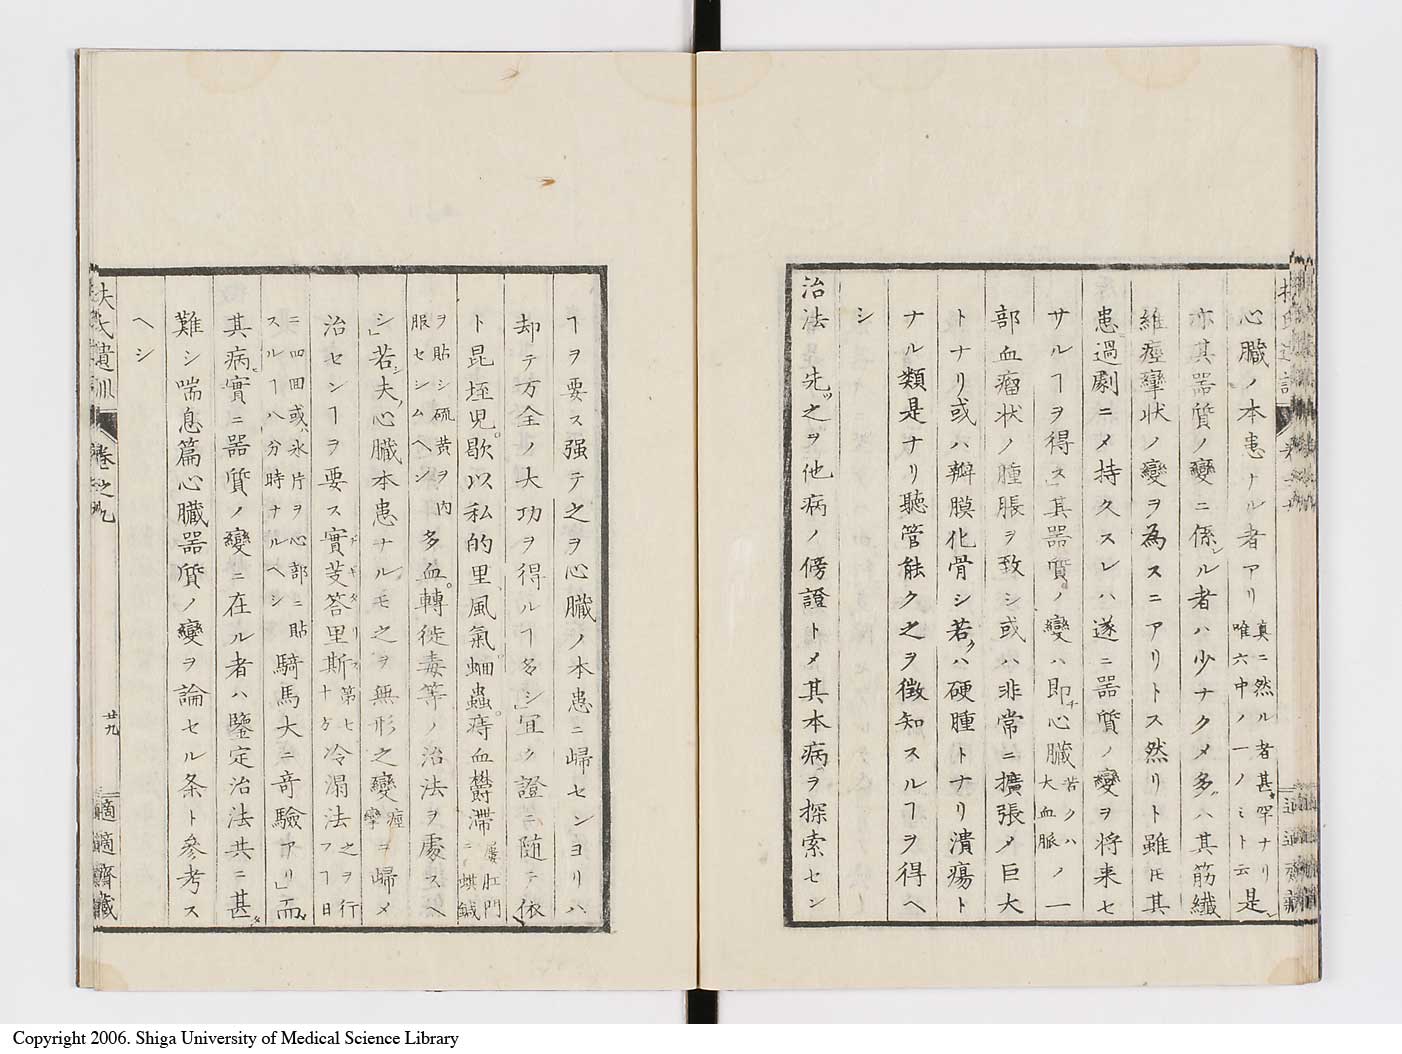 心臓ノ本患ナル者アリ真ニ然ル者甚タ罕ナリ唯六中ノ一ノミト云是レ
亦其器質ノ變ニ係ル者ハ少ナクメ多クハ其筋纖
維痙攣状ノ變ヲ為スニアリトス然リト雖𪜈其
患過劇ニメ持久スレハ遂ニ器質ノ變ヲ将来セ
サルヿヲ得ス」其器質ノ變ハ即チ心臓若クハ大血脈ノ一
部血瘤状ノ腫脹ヲ致シ或ハ非常ニ擴張メ巨大
トナリ或ハ瓣膜化骨シ若クハ硬腫トナリ潰瘍ト
ナル類是ナリ聽管能ク之ヲ徴知スルヿヲ得ヘ
シ
治法 先ツ之ヲ他病ノ傍證トメ其本病ヲ探索セン
ヿヲ要ス强テ之ヲ心臓ノ本患ニ歸センヨリハ
却テ万全ノ大功ヲ得ルヿ多シ」宜ク證ニ随テ依
ト昆垤児。歇以私的里風氣蛔蟲。痔血欝滞屢肛門ニ蜞鍼
ヲ貼シ硫黄ヲ内服セシムヘシ多血。轉徙毒等ノ治法ヲ處スヘ
シ」若シ夫ノ心臓本患ナルモ之ヲ無形之變痙攣ヲ歸メ
治センヿヲ要ス實芰答里斯第七十方冷溻法之ヲ行フヿ日
ニ四回或ハ氷片ヲ心部ニ貼スルヿ八分時ナルヘシ騎馬大ニ竒驗アリ」而メ
其病實ニ器質ノ變ニ在ル者ハ鑒定治法共ニ甚タ
難シ喘息篇心臓器質ノ變ヲ論セル条ト参考ス
ヘシ
扶氏遺訓 卷之九 廿九 適適齋藏
Copyright 2006. Shiga University of Medical Science Library